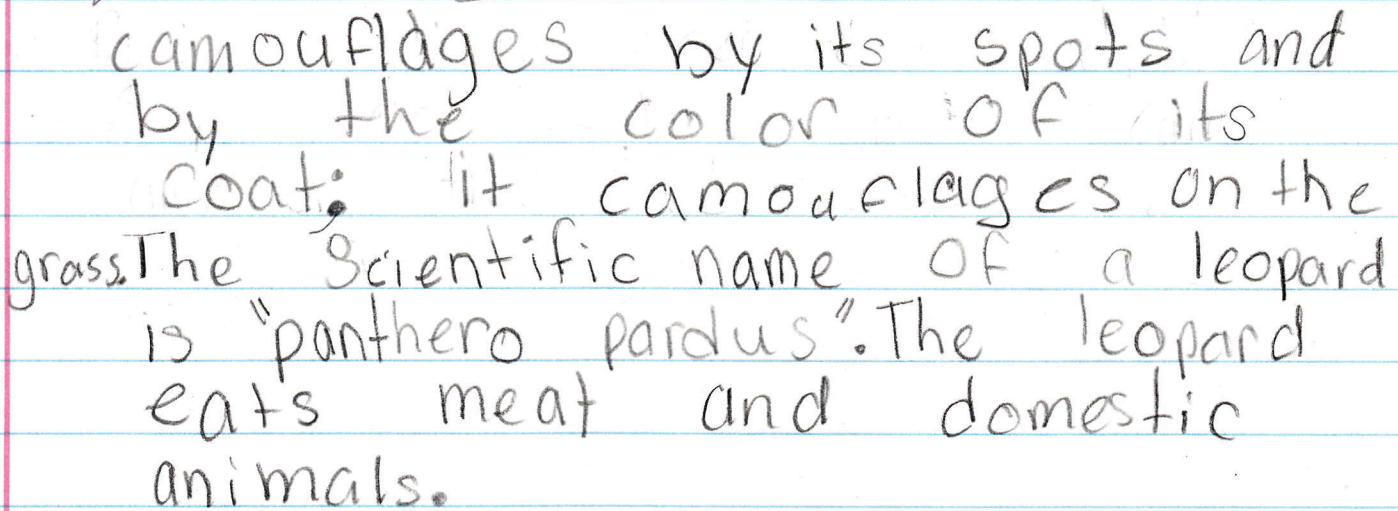 camouflages by its spots and
by the color of its
coat; it camouflages on the
grass. The Scientific name of a leopard
is "panthero pardus". The leopard
eats meat and domestic
animals.